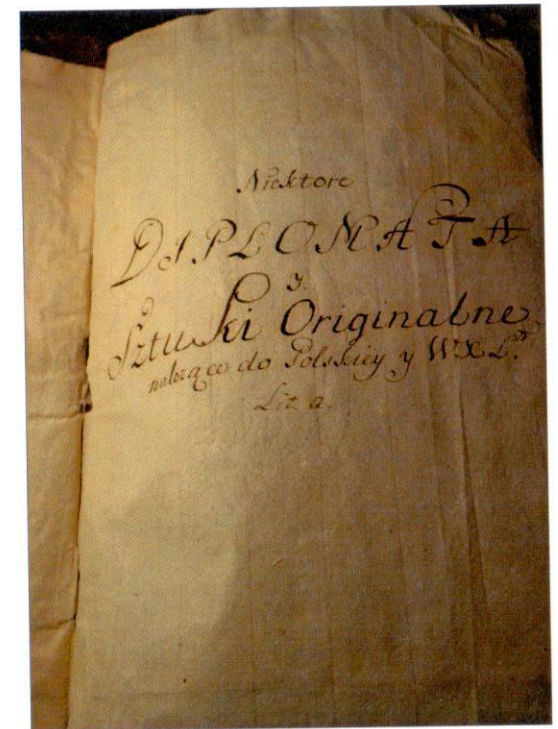 Niektore
DIPLOMATA
y
Sztuki Originalne
nalezące do Polskiey y WXL.
Lit. a.